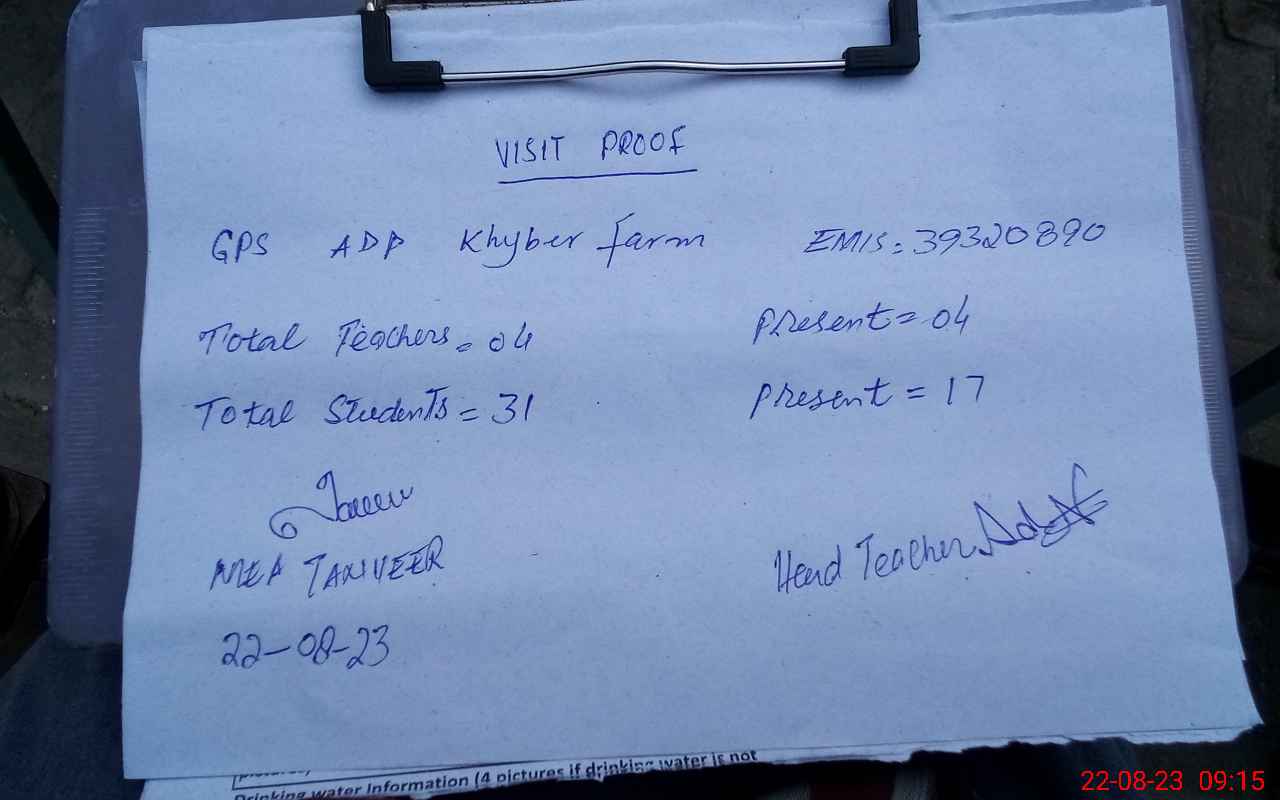 VISIT PROOF
GPS ADP Khyber farm EMIS: 39320890
Total Teachers = 04 Present = 04
Total Students = 31 Present = 17
MEA TANVEER
Head Teacher
22-08-23
Drinking water Information (4 pictures if drinking water is not
22-08-23 09:15